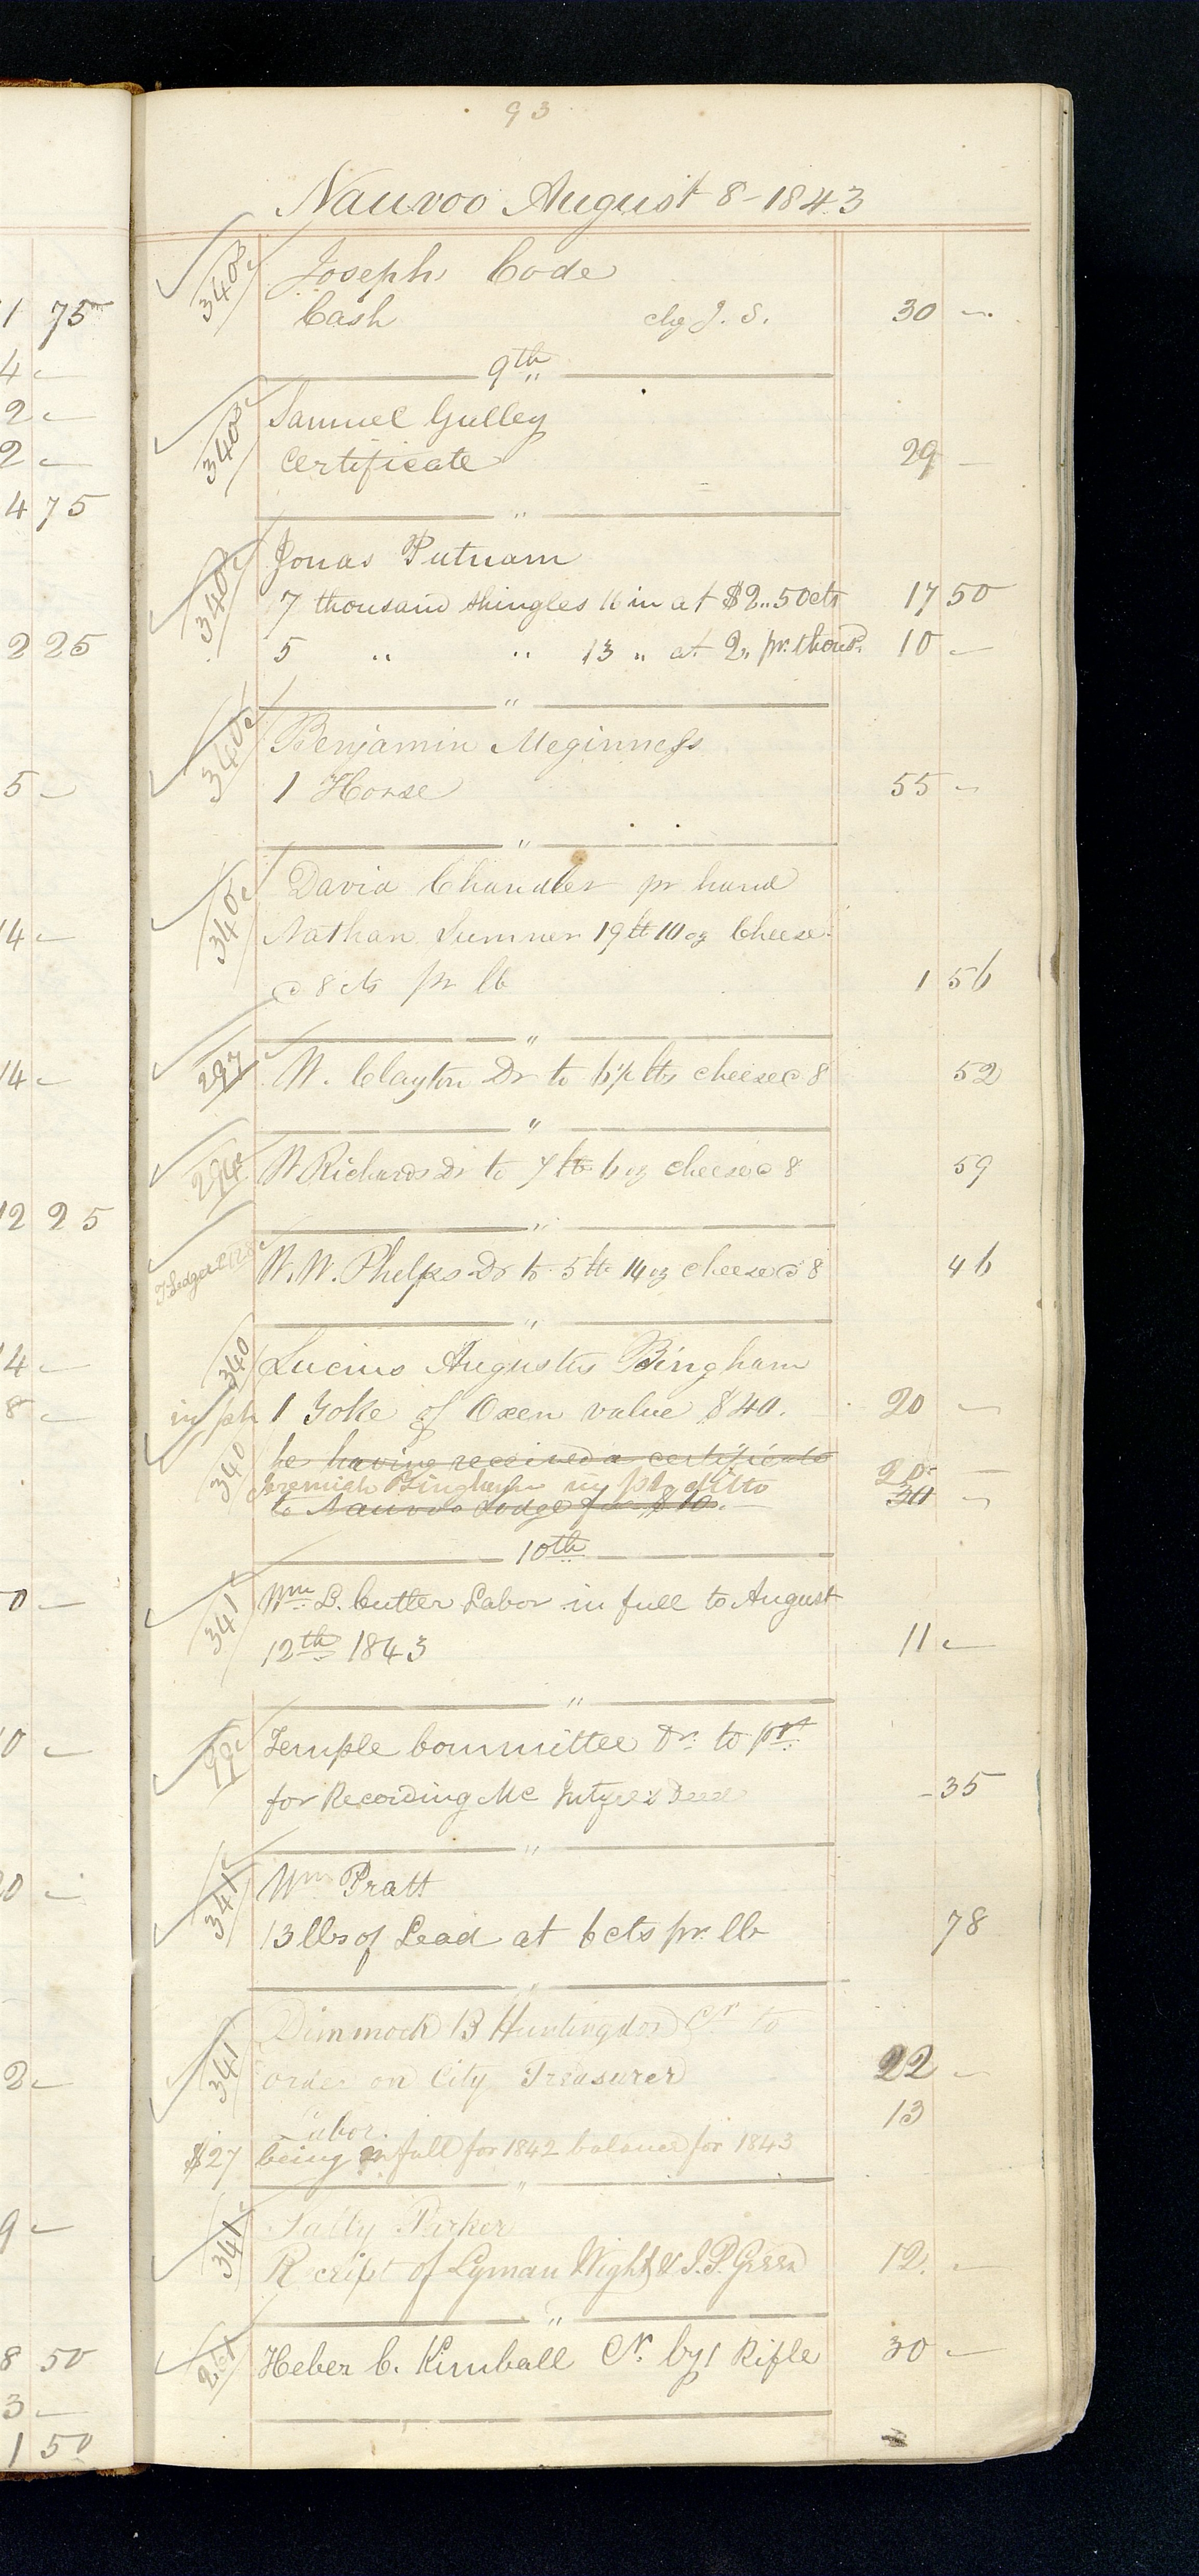 93
Nauvoo August 8-1843
340 Joseph Code
Cash chg J. S. 30 -
9th
340 Samuel Gulley
Certificate 29 -
"
340 Jonas Putnam
7 thousand shingles 16 in at $2..50cts 17 50
5 " " 13 " at 2, pr. thousd. 10 -
"
340 Benjamin Meginness
1 Horse 55 -
"
340 David Chandler pr hand
Nathan Sumner 19 lb 10 oz Cheese
@ 8 cts pr lb 1 56
"
297 W. Clayton Dr to 6½ lbs cheese @ 8 52
"
W Richards Dr to 7 lb 6 oz cheese @ 8 59
"
W. W. Phelps Dr to 5 lb 14 oz cheese @ 8 46
"
340 Lucius Augustus Bingham
1 Yoke of Oxen value $40. 20 -
he having received a certificate
340 Jeremiah Bingham in pt ditto 20 -
to Nauvoo Lodge for $10. 30 -
10th
341 Wm L. Cutler Labor in full to August
12th 1843 11 -
"
99 Temple Committee Dr. to
for Recording Mc Deed - 35
"
341 Wm Pratt
13 lbs of Lead at 6 cts pr. lb 78
"
341 Dimmock B Huntingdon Cr to
order on City Treasurer 22 -
Labor. 13
$27 being in full for 1842 balance for 1843
"
341 Sally Parker
Receipt of Lyman Wight & J. P. Green 12. -
"
261 Heber C. Kimball Cr. by 1 Rifle 30 -
1 75
4 -
2 -
2 -
4 75
2 25
5 -
14 -
14 -
12 25
4 -
8 -
0 -
0 -
0 -
2 -
9 -
8 50
3 -
1 50